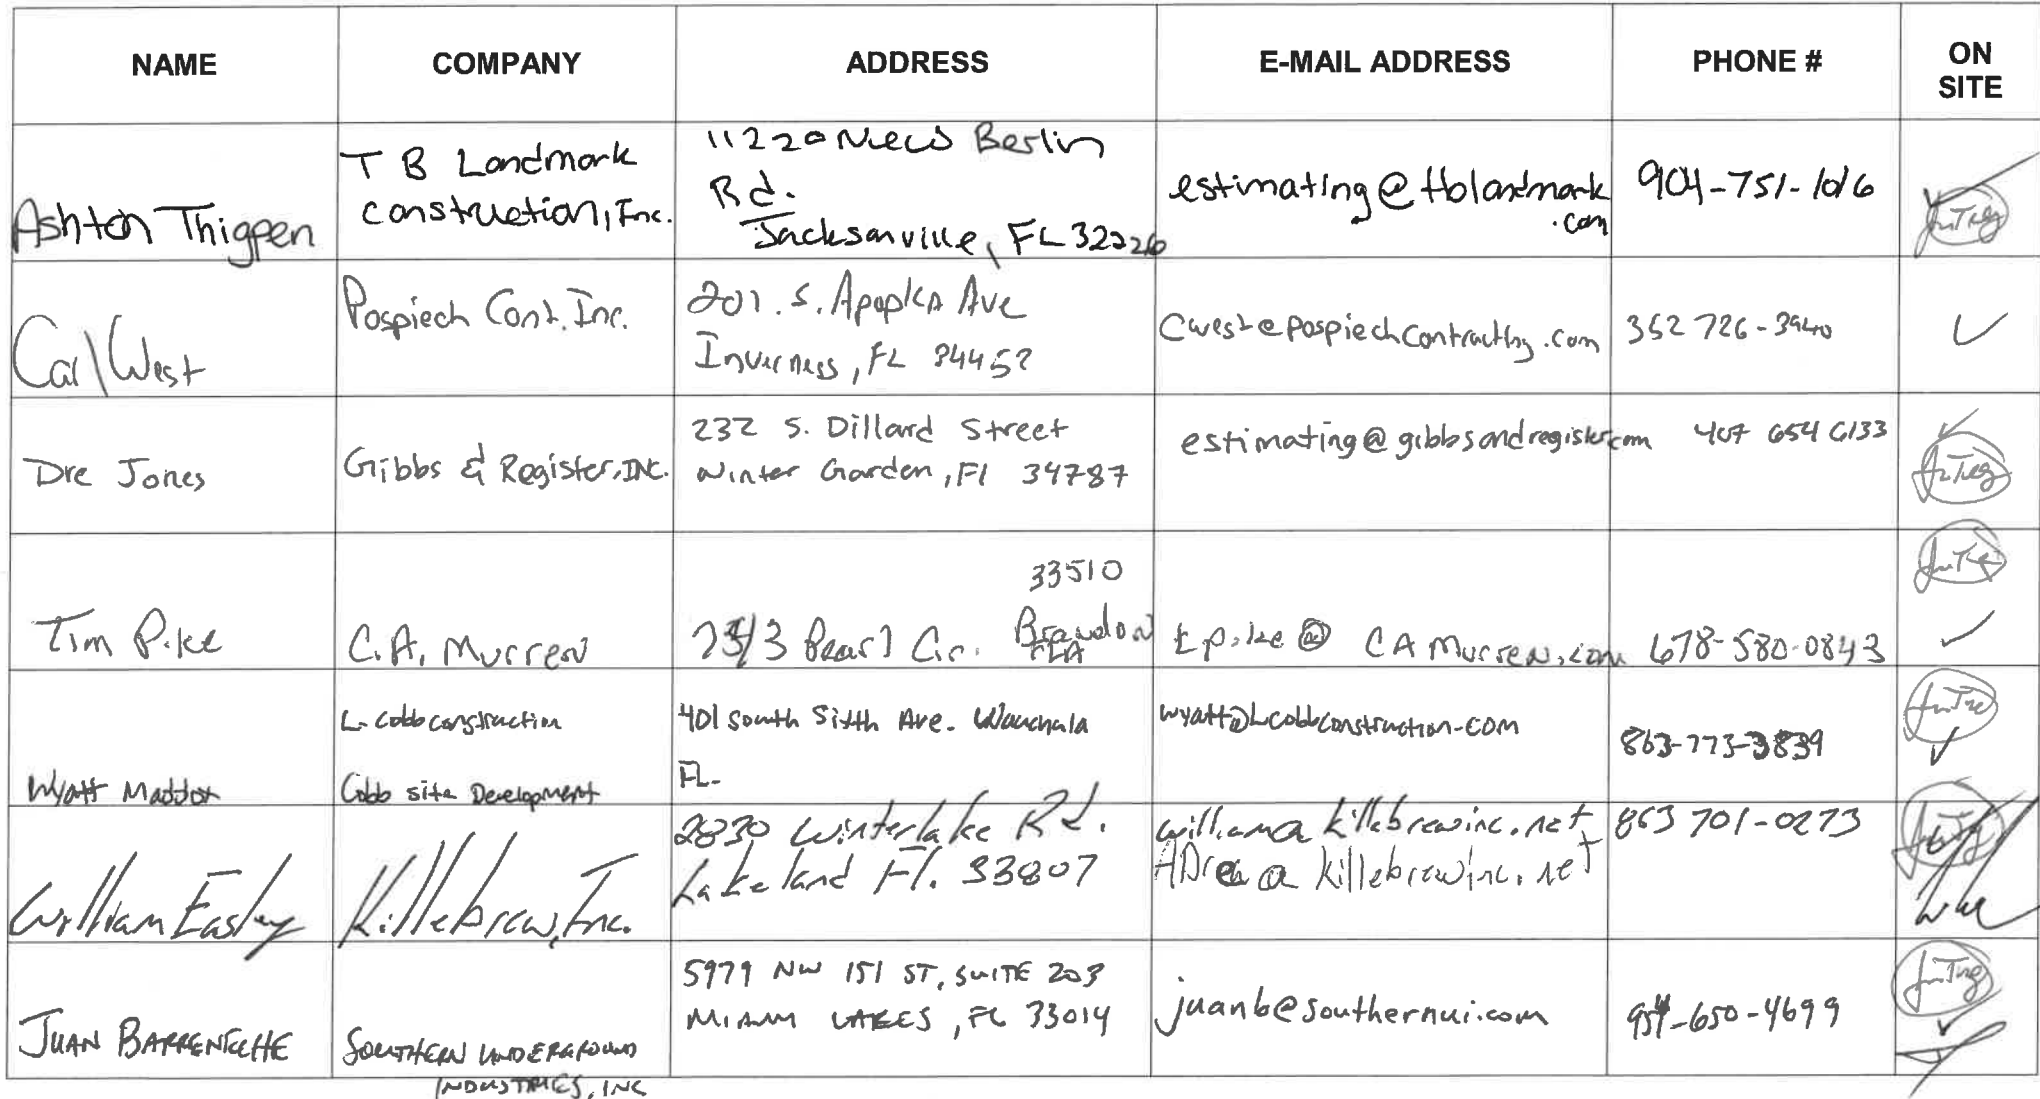 NAME COMPANY ADDRESS E-MAIL ADDRESS PHONE # ON SITE
Ashton Thigpen
T B Landmark
Construction, Inc.
11220 New Berlin
Rd.
Jacksonville, FL 32226
estimating@tblandmark
.com
904-751-1016
Carl West
Pospiech Cont. Inc.
201. S. Apopka Ave
Inverness, FL 34452
Cwest@pospiechcontracting.com
352 726-3940
Dre Jones
Gibbs & Register, INC.
232 S. Dillard Street
Winter Garden, Fl 34787
estimating@gibbsandregister.com
407 654 6133
Tim Pike
C.A. Murren
33510
2313 Pearl Cir. Brandon
FLA
tpike@CAMurren.com
678-580-0843
Wyatt Maddox
L- Cobb construction
Cobb site Development
401 South Sixth Ave. Wauchula
FL-
wyatt@Lcobbconstruction.com
863-773-3839
William Easley
Killebrew, Inc.
2830 Winterlake Rd.
Lakeland Fl. 33807
william@killebrewinc.net
@killebrewinc.net
863 701-0273
JUAN BARRENECHE
SOUTHERN UNDERGROUND
INDUSTRIES, INC
5979 NW 151 ST, SUITE 203
MIAMI LAKES, FL 33014
juanb@southernui.com
954-650-4699